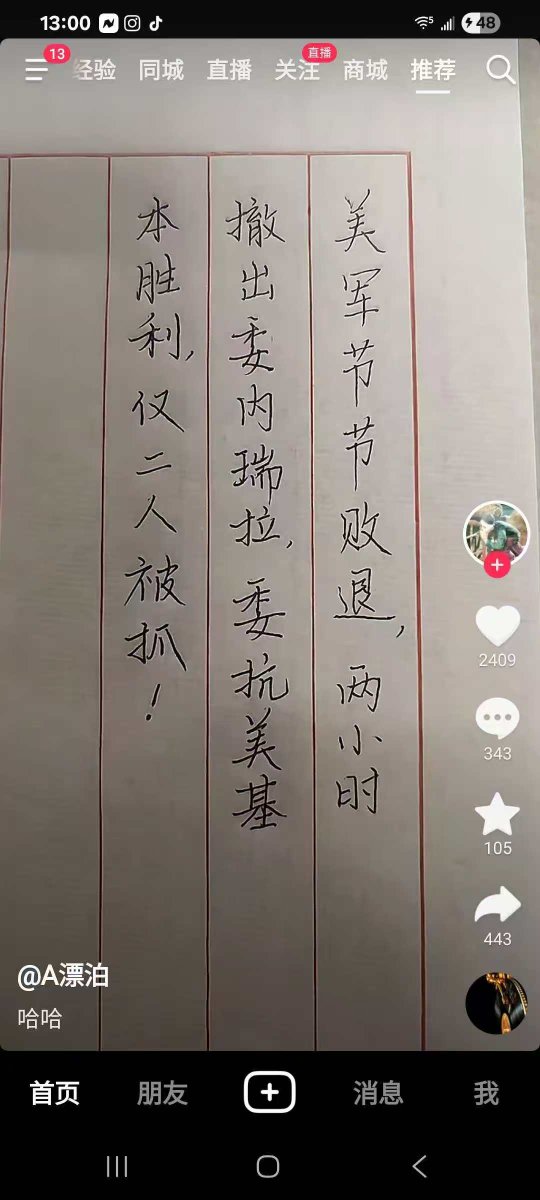 13:00
48
13
经验 同城 直播 关注 商城 推荐
直播
美军节节败退，两小时
撤出委内瑞拉，委抗美基
本胜利，仅二人被抓！
2409
343
105
443
@A漂泊
哈哈
首页 朋友 消息 我